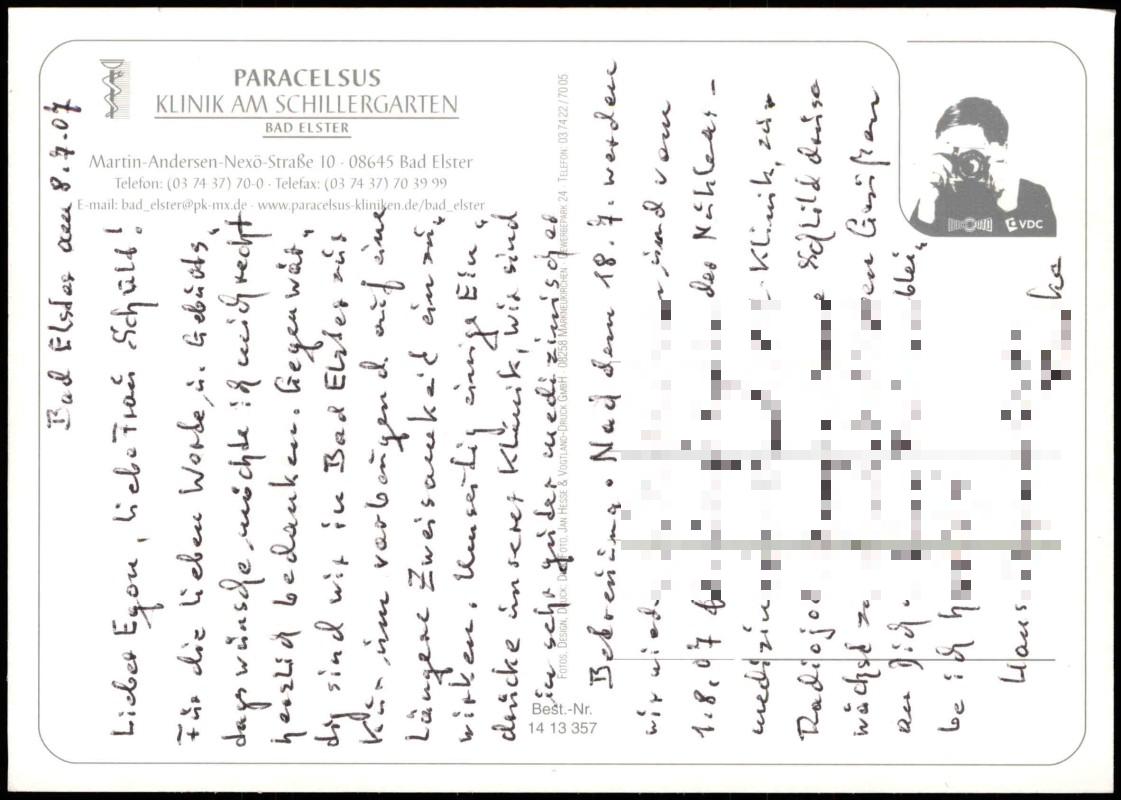 PARACELSUS
KLINIK AM SCHILLERGARTEN
BAD ELSTER
Martin-Andersen-Nexö-Straße 10 · 08645 Bad Elster
Telefon: (03 74 37) 70-0 · Telefax: (03 74 37) 70 39 99
E-mail: bad_elster@pk-mx.de · www.paracelsus-kliniken.de/bad_elster
VDC
FOTOS, DESIGN, DRUCK: FOTO, JAN HESSE & VOGTLAND-DRUCK GMBH · 08258 MARKNEUKIRCHEN · GEWERBEPARK 24 TELEFON: 037422/7005
Best.-Nr.
14 13 357
Bad Elster am 8.7.07
Lieber Egon, liebe Frau Schult!
Für die lieben Worte u. Geburts„
tagswünsche möchte ich mich recht
herzlich bedanken. Gegenwär„
tig sind wir in Bad Elster zur
Kur, um vorbeugend auf eine
längere Zweisamkeit einzu„
wirken. Umseitig einige Ein„
drücke unserer Klinik, wir sind
in sehr guter medizinischer
Betreuung. Nach dem 18.7. werden
wir wied und vom
1.8.07 der Nuklear-
medizin Klinik, zur
Radiojo Schilddrüse
an Dich blei„
Haus ke